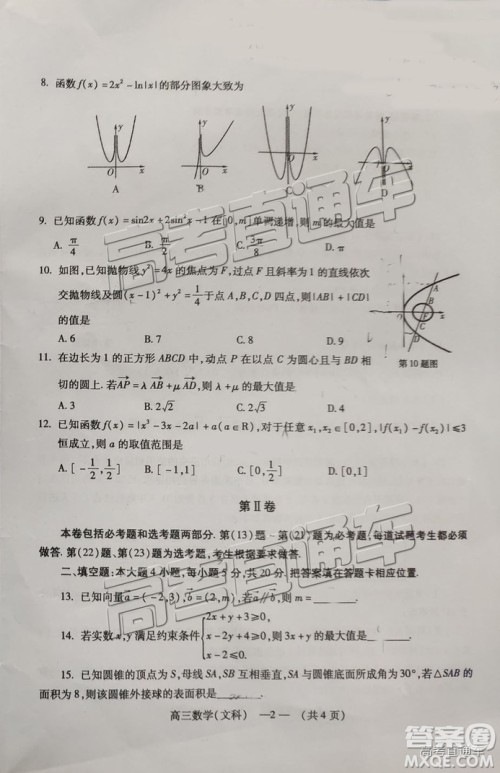 8. 函数f(x)=2x²-ln|x|的部分图象大致为
y
O
x
A
y
O
x
B
y
O
x
C
y
x
D
9. 已知函数f(x)=sin2x+2sin²x-1在[0,m]单调递增,则m的最大值是
A. π/4 B. π/2 C. 3π/8 D. π
10. 如图,已知抛物线y²=4x的焦点为F,过点F且斜率为1的直线依次
交抛物线及圆(x-1)²+y²=1/4于A,B,C,D四点,则|AB|+|CD|
的值是
A. 6 B. 7 C. 8 D. 9
第10题图
11. 在边长为1的正方形ABCD中,动点P在以点C为圆心且与BD相
切的圆上.若AP=λAB+μAD,则λ+μ的最大值是
A. 3 B. 2√2 C. 2√3 D. 4
12. 已知函数f(x)=|x³-3x-2a|+a(a∈R),对于任意x₁,x₂∈[0,2],|f(x₁)-f(x₂)|≤3
恒成立,则a的取值范围是
A. [-1/2,1/2] B. [-1,1] C. [0,1/2] D. [0,1]
第Ⅱ卷
本卷包括必考题和选考题两部分.第(13)题~第(21)题为必考题,每道试题考生都必须
做答.第(22)题、第(23)题为选考题,考生根据要求做答.
二、填空题:本大题4小题,每小题5分,共20分.把答案填在答题卡相应位置.
13. 已知向量a=(-2,3),b=(2,m),若a∥b,则m=
14. 若实数x,y满足约束条件{2x+y+3≥0, x-2y+4≥0, x-2≤0. 则3x+y的最大值是
15. 已知圆锥的顶点为S,母线SA,SB互相垂直,SA与圆锥底面所成角为30°,若△SAB的
面积为8,则该圆锥外接球的表面积是
高三数学(文科) —2— (共4页)
高考直通车
高考直通车
答案圈
MXQE.COM
高考直通车